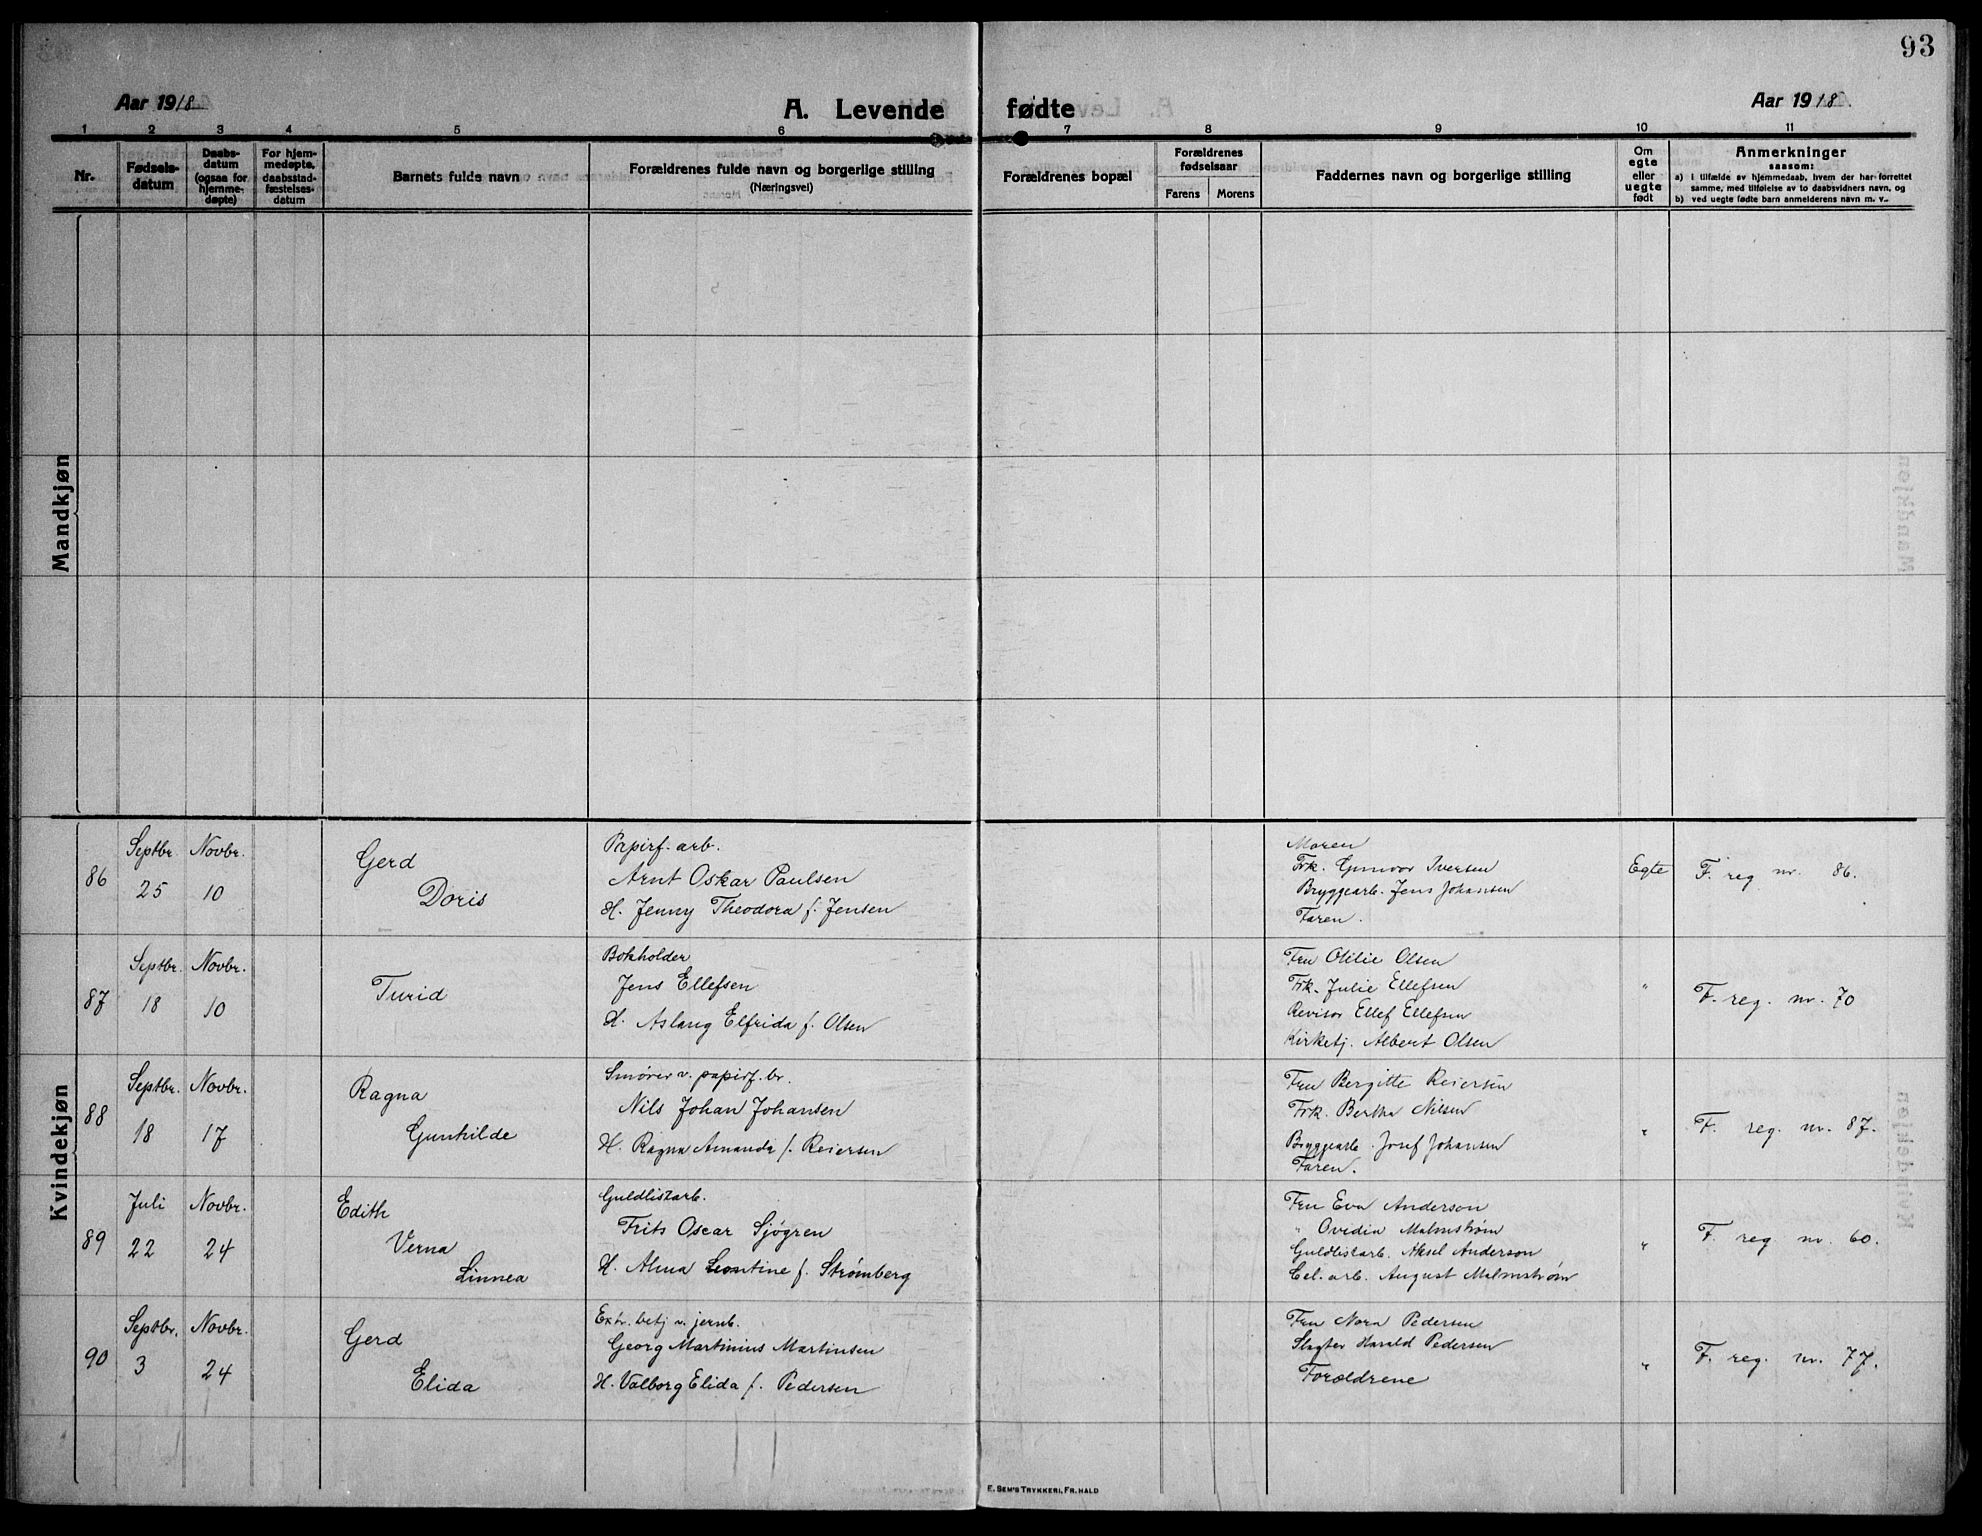 93
Aar 1918
A. Levende fødte
Aar 1918.
1 2 3 4 5 6 7 8 9 10 11
Nr.
Fødsels-
datum
Daabs-
datum
(ogsaa for
hjemme-
døpte)
For hjem-
medøpte,
daabsstad-
fæstelses-
datum
Barnets fulde navn
Forældrenes fulde navn og borgerlige stilling
(Næringsvei)
Forældrenes bopæl
Forældrenes
fødselsaar
Farens
Morens
Faddernes navn og borgerlige stilling
Om
egte
eller
uegte
født
Anmerkninger
saasom:
a) I tilfælde av hjemmedaab, hvem der har forrettet
samme, med tilføielse av to daabsvidners navn, og
b) ved uegte fødte barn anmelderens navn m. v.
Mandkjøn
Kvindekjøn
86
Septbr.
25
Novbr.
10
Gerd
Doris
Papirf. arb.
Arnt Oskar Paulsen
H. Jenny Theodora f. Jensen
Moren
Frk. Gunvor Iversen
Bryggearb. Jens Johansen
Faren.
Egte
F. reg nr. 86.
87
Septbr.
18
Novbr.
10
Turid
Bokholder
Jens Ellefsen
H. Aslaug Elfrida f. Olsen
Fru Otilie Olsen
Frk. Julie Ellefsen
Revisor Ellef Ellefsen
Kirketj. Albert Olsen
"
F. reg. nr. 70
88
Septbr.
18
Novbr.
17
Ragna
Gunhilde
Smører v. papirf. br.
Nils Johan Johansen
H. Ragna Amanda f. Reiersen
Fru Bergitte Reiersen
Frk. Bertha Nilsen
Bryggearb. Josef Johansen
Faren.
"
F. reg. nr. 87.
89
Juli
22
Novbr.
24
Edith
Verna
Linnea
Guldlistarb.
Frits Oscar Sjøgren
H. Alma Leontine f. Strømberg
Fru Eva Anderson
" Ovidia Malmstrøm
Guldlistarb. Aksel Anderson
Cel. arb. August Malmstrøm
"
F. reg nr. 60.
90
Septbr.
3
Novbr.
24
Gerd
Elida
Extr. betj v. jernb.
Georg Martinius Martinsen
H. Valborg Elida f. Pedersen
Fru Nora Pedersen
Slagter Harald Pedersen
Forældrene
"
F. reg. nr. 77.
E. SEM'S TRYKKERI, FR.HALD